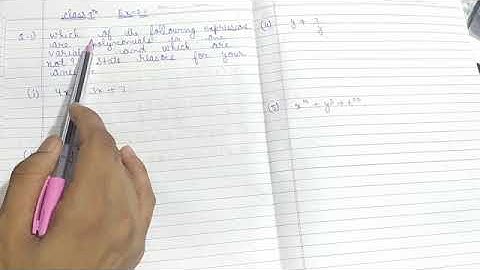 Class 9th Ex-2.1
Q-1) Which of the following expressions
are polynomials in one
variable and which are
not? State reasons for your
answer.
(i) 4x² 3x + 7
(iv) y + 2/y
(v) x¹⁰ + y³ + t⁵⁰